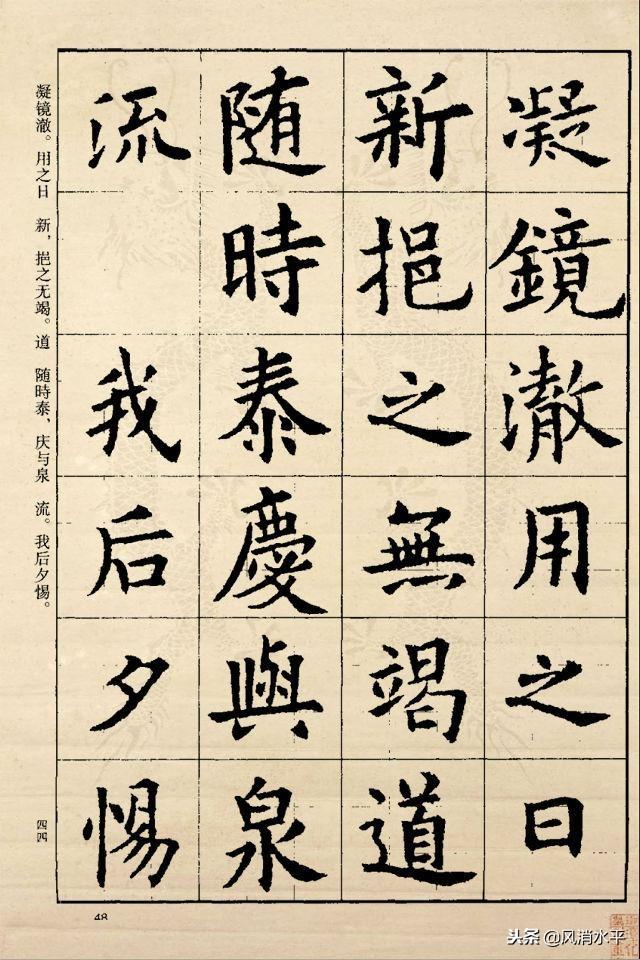 凝鏡澈用之日
新挹之無竭道
随時泰慶與泉
流 我后夕惕
凝镜澈。用之日 新，挹之无竭。道 随時泰，庆与泉 流。我后夕惕。
四四
48
头条 @风消水平